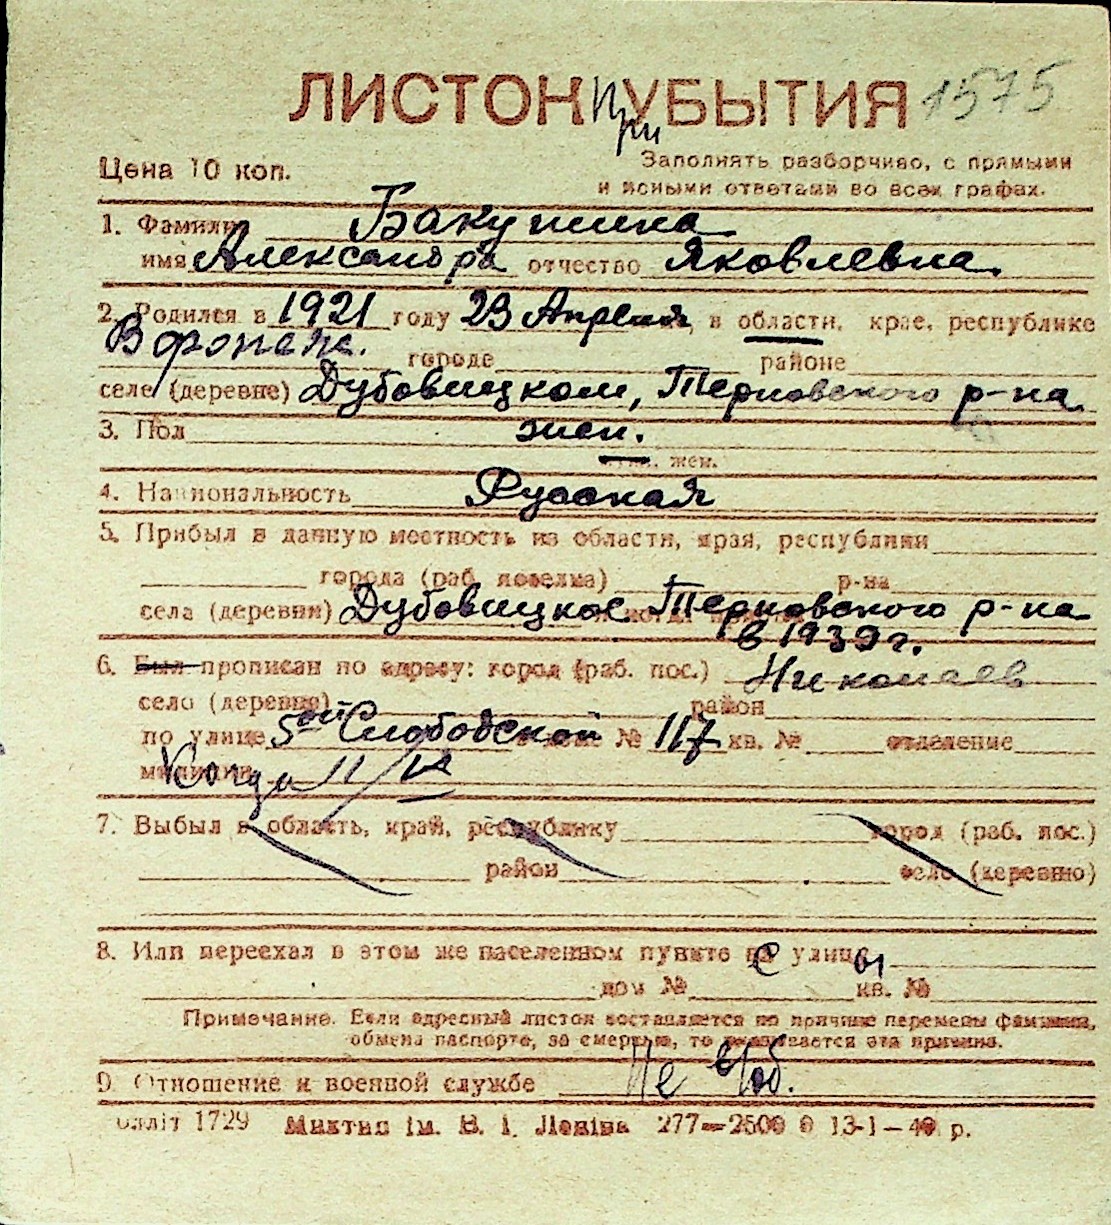 ЛИСТОК При УБЫТИЯ 1575
Цена 10 коп.
Заполнять разборчиво, с прямыми
и ясными ответами во всех графах.
1. Фамилия Бакушина
имя Александра отчество Яковлевна.
2. Родился в 1921 году 23 Апреля, в области, крае, республике
Воронеж. городе районе
селе (деревне) Дубовицком, Терновского р-на
3. Пол жен.
муж. жен.
4. Национальность Русская
5. Прибыл в данную местность из области, края, республики
города (раб. поселка) р-на
села (деревни) Дубовицкое Терновского р-на
в 1939 г.
6. Был прописан по адресу: город (раб. пос.) Николаев
село (деревне) район
по улице 5ой Слободской № 117 кв. № отделение
милиции Когда 11/IV
7. Выбыл в область, край, республику город (раб. пос.)
район село (деревню)
8. Или переехал в этом же населенном пункте с улицы
дом № кв. №
Примечание. Если адресный листок составляется по причине перемены фамилии,
обмена паспорта, за смертью, то указывается эта причина.
9. Отношение к военной службе Не в/об.
Облліт 1729 Миктип ім. В. І. Леніна 277—2500 13-1—40 р.